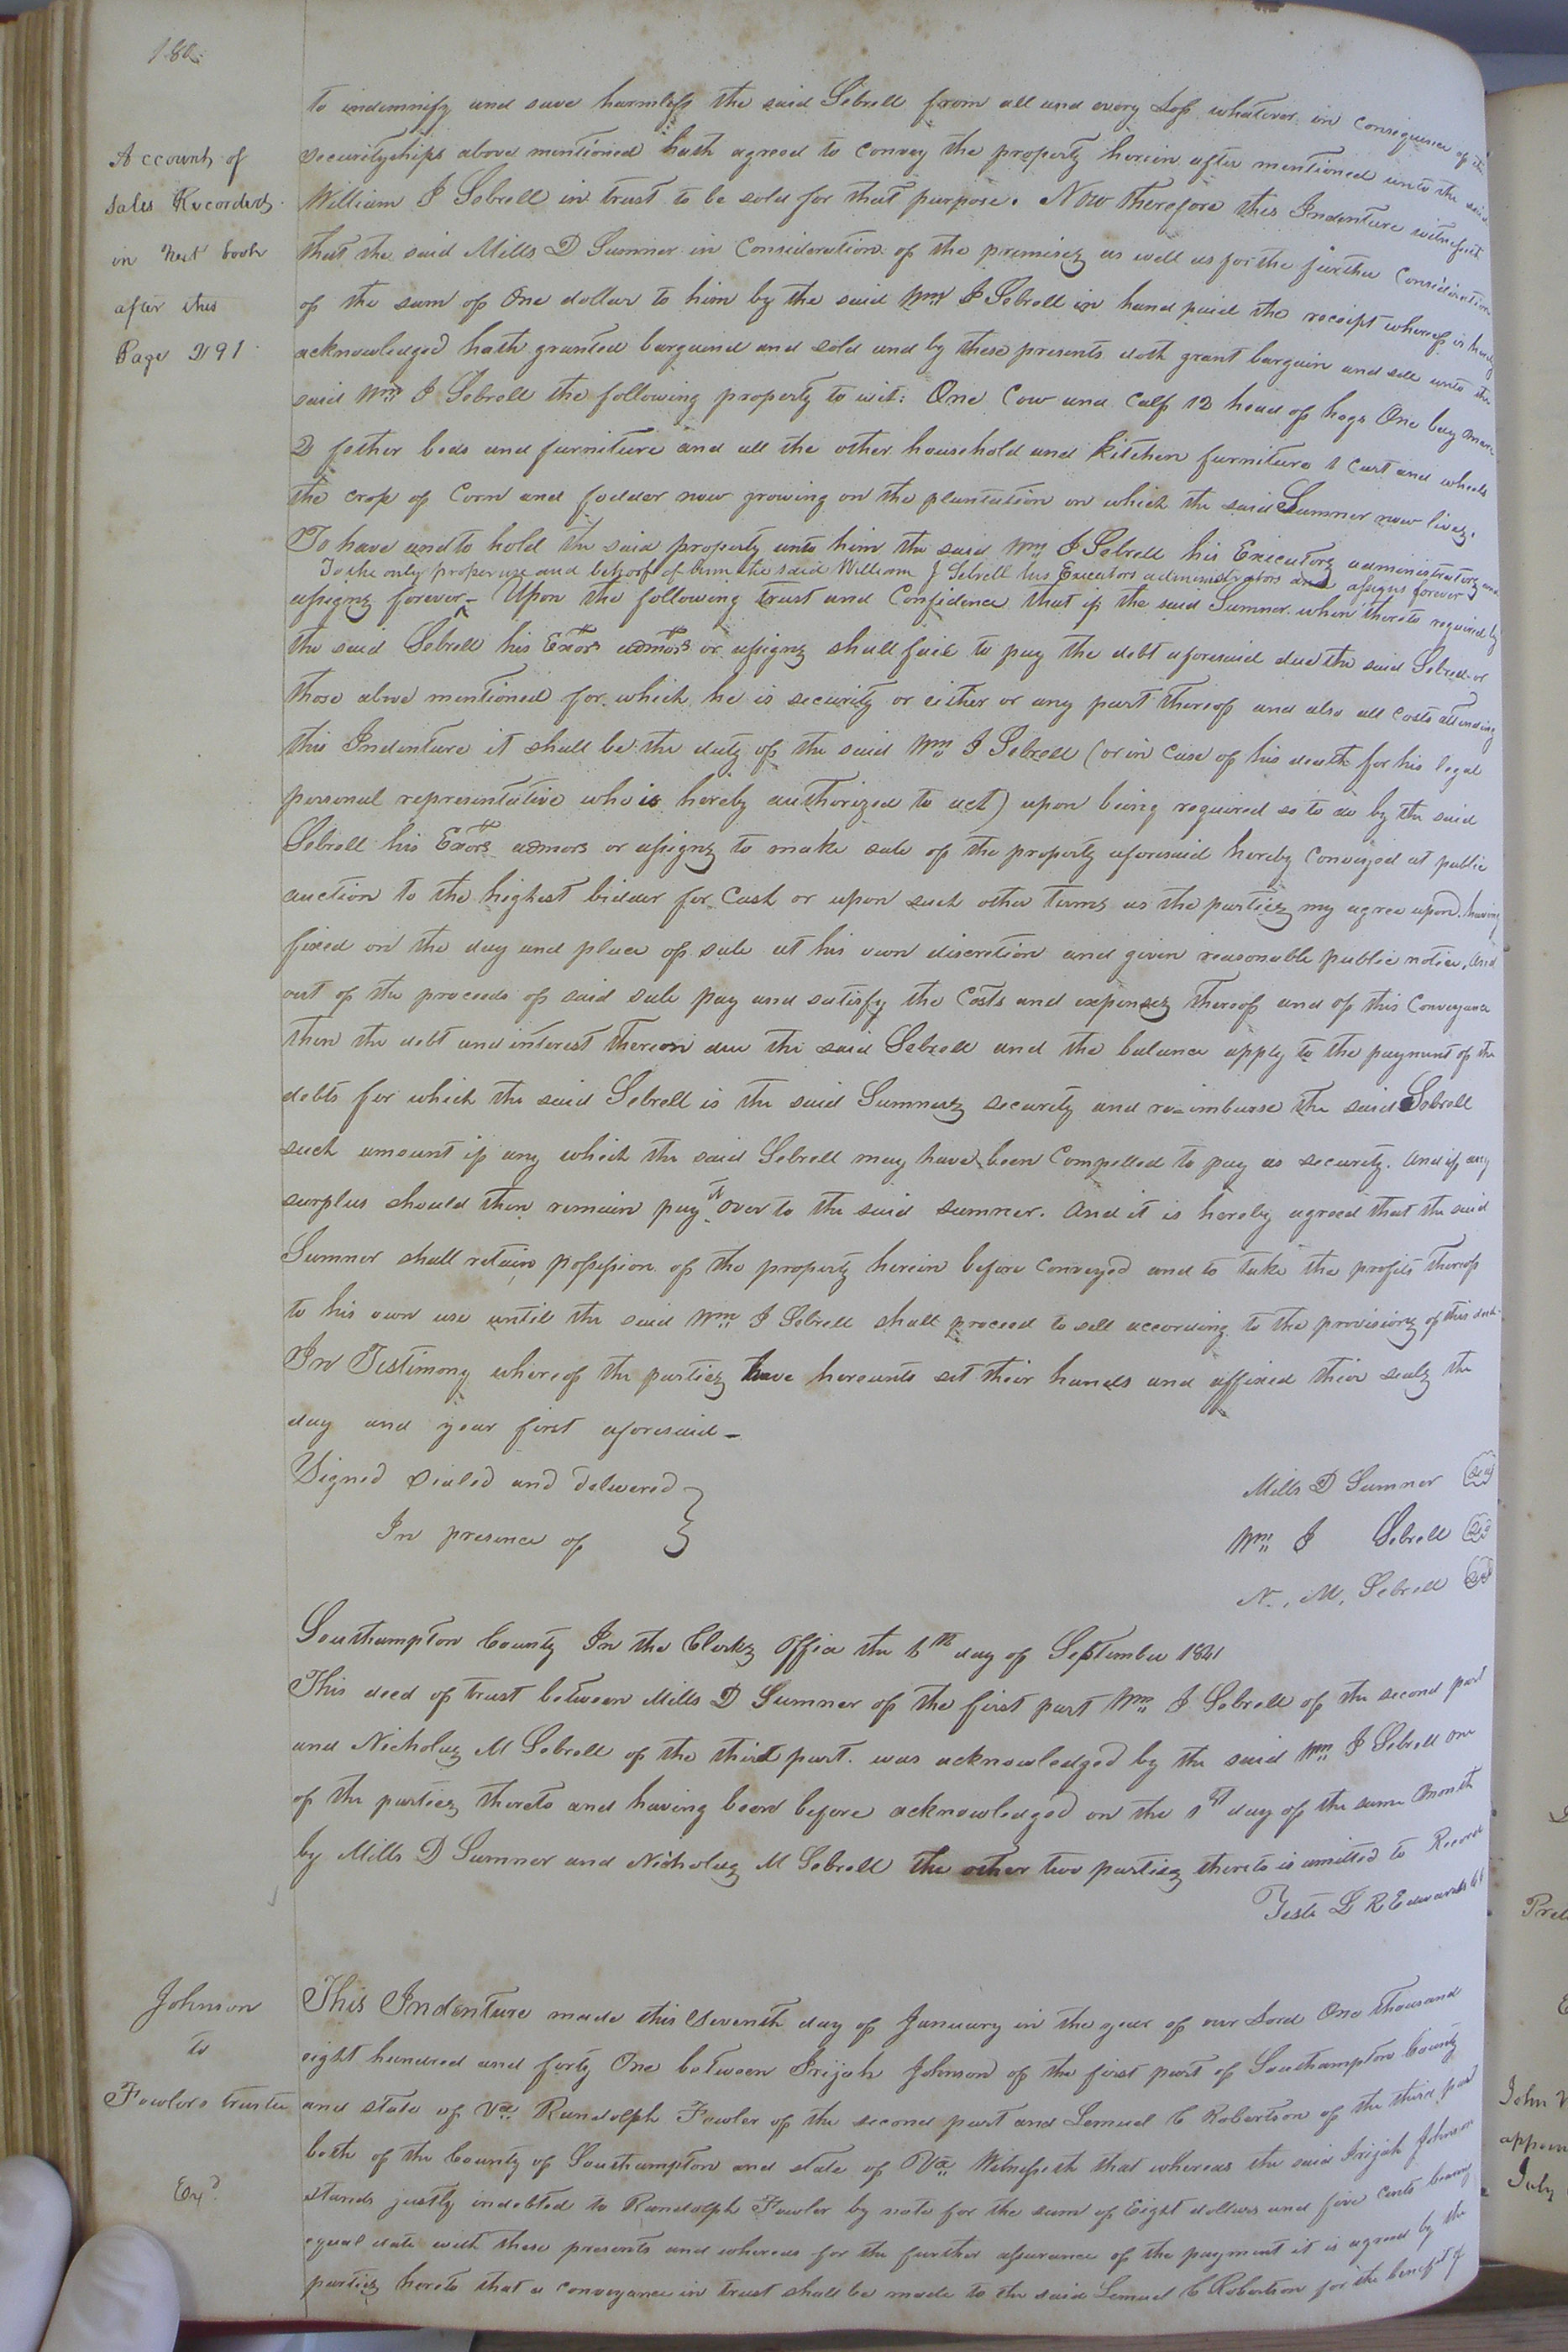 180.
to indemnify and save harmless the said Sebrell from all and every Loss whatever in consequence of the
securityships above mentioned hath agreed to convey the property herein after mentioned unto the said
William J Sebrell in trust to be sold for that purpose. Now Therefore this Indenture witnesseth
that the said Mills D Sumner in Consideration of the premises as well as for the further Consideration
of the sum of One dollar to him by the said Wm J Sebrell in hand paid the receipt whereof is hereby
acknowledged hath granted bargaind and sold and by these presents doth grant bargain and sell unto the
said Wm J Sebrell the following property to wit: One Cow and Calf 12 head of hogs One bay mare
2 fether beds and furniture and all the other household and Kitchen furniture 1 cart and wheels
the crop of Corn and fodder now growing on the plantation on which the said Sumner now lives.
To have and to hold the said property unto him the said Wm J Sebrell his Executors administrators and
To the only proper use and behoof of him the said William J Sebrell his Executors administrators and assigns forever
assigns forever - Upon the following trust and Confidence that if the said Sumner when thereto required by
the said Sebrell his Exors admors or assigns shall fail to pay the debt aforesaid due the said Sebrell or
those above mentioned for which he is security or either or any part thereof and also all costs attending
this Indenture it shall be the duty of the said Wm J Sebrell (or in case of his death for his legal
personal representative who is hereby authorized to act) upon being required so to do by the said
Sebrell his Exors admors or assigns to make sale of the property aforesaid hereby Conveyed at public
auction to the highest bidder for Cash or upon such other terms as the parties my agree upon. having
fixed on the day and place of sale at his own discretion and given reasonable public notice. And
out of the proceeds of said sale pay and satisfy the Costs and expenses thereof and of this Conveyance
then the debt and interest thereon due the said Sebrell and the balance apply to the payment of the
debts for which the said Sebrell is the said Sumners security and re-imburse the said Sebrell
such amount if any which the said Sebrell may have been Compelled to pay as security. And if any
surplus should then remain pay it over to the said sumner. And it is hereby agreed that the said
Sumner shall retain possession of the property herein before Conveyed and to take the profits thereof
to his own use until the said Wm J Sebrell shall proceed to sell according to the provisions of this deed.
In Testimony whereof the parties have hereunto set their hands and affixed their seals the
day and year first aforesaid -
Signed Sealed and delivered }
In presence of
Mills D Sumner Seal
Wm J Sebrell Seal
N. M. Sebrell Seal
Southampton County In the Clerks Office the 6th day of September 1841
This deed of trust between Mills D Sumner of the first part Wm J Sebrell of the second part
and Nicholas M Sebrell of the third part. was acknowledged by the said Wm J Sebrell one
of the parties thereto and having been before acknowledged on the 1st day of the same Month
by Mills D Sumner and Nicholas M Sebrell the other two parties thereto is amitted to Record
Teste L R Edwards
This Indenture made this Seventh day of January in the year of our Lord One thousand
eight hundred and forty One between Irijah Johnson of the first part of Southampton County
and state of Va. Randolph Fowler of the second part and Lemuel C Robertson of the third part
both of the County of Southampton and state of Va. Witnesseth that whereas the said Irijah Johnson
stands justly indebted to Randolph Fowler by note for the sum of Eight dollars and five cents bearing
equal date with these presents and whereas for the further assurance of the payment it is agreed by the
parties hereto that a conveyance in trust shall be made to the said Lemuel C Robertson for the benefit of
Accounts of
Sales Recorded
in Next book
after this
Page 291
Johnson
to
Fowlers trustee
Exd.
John
July